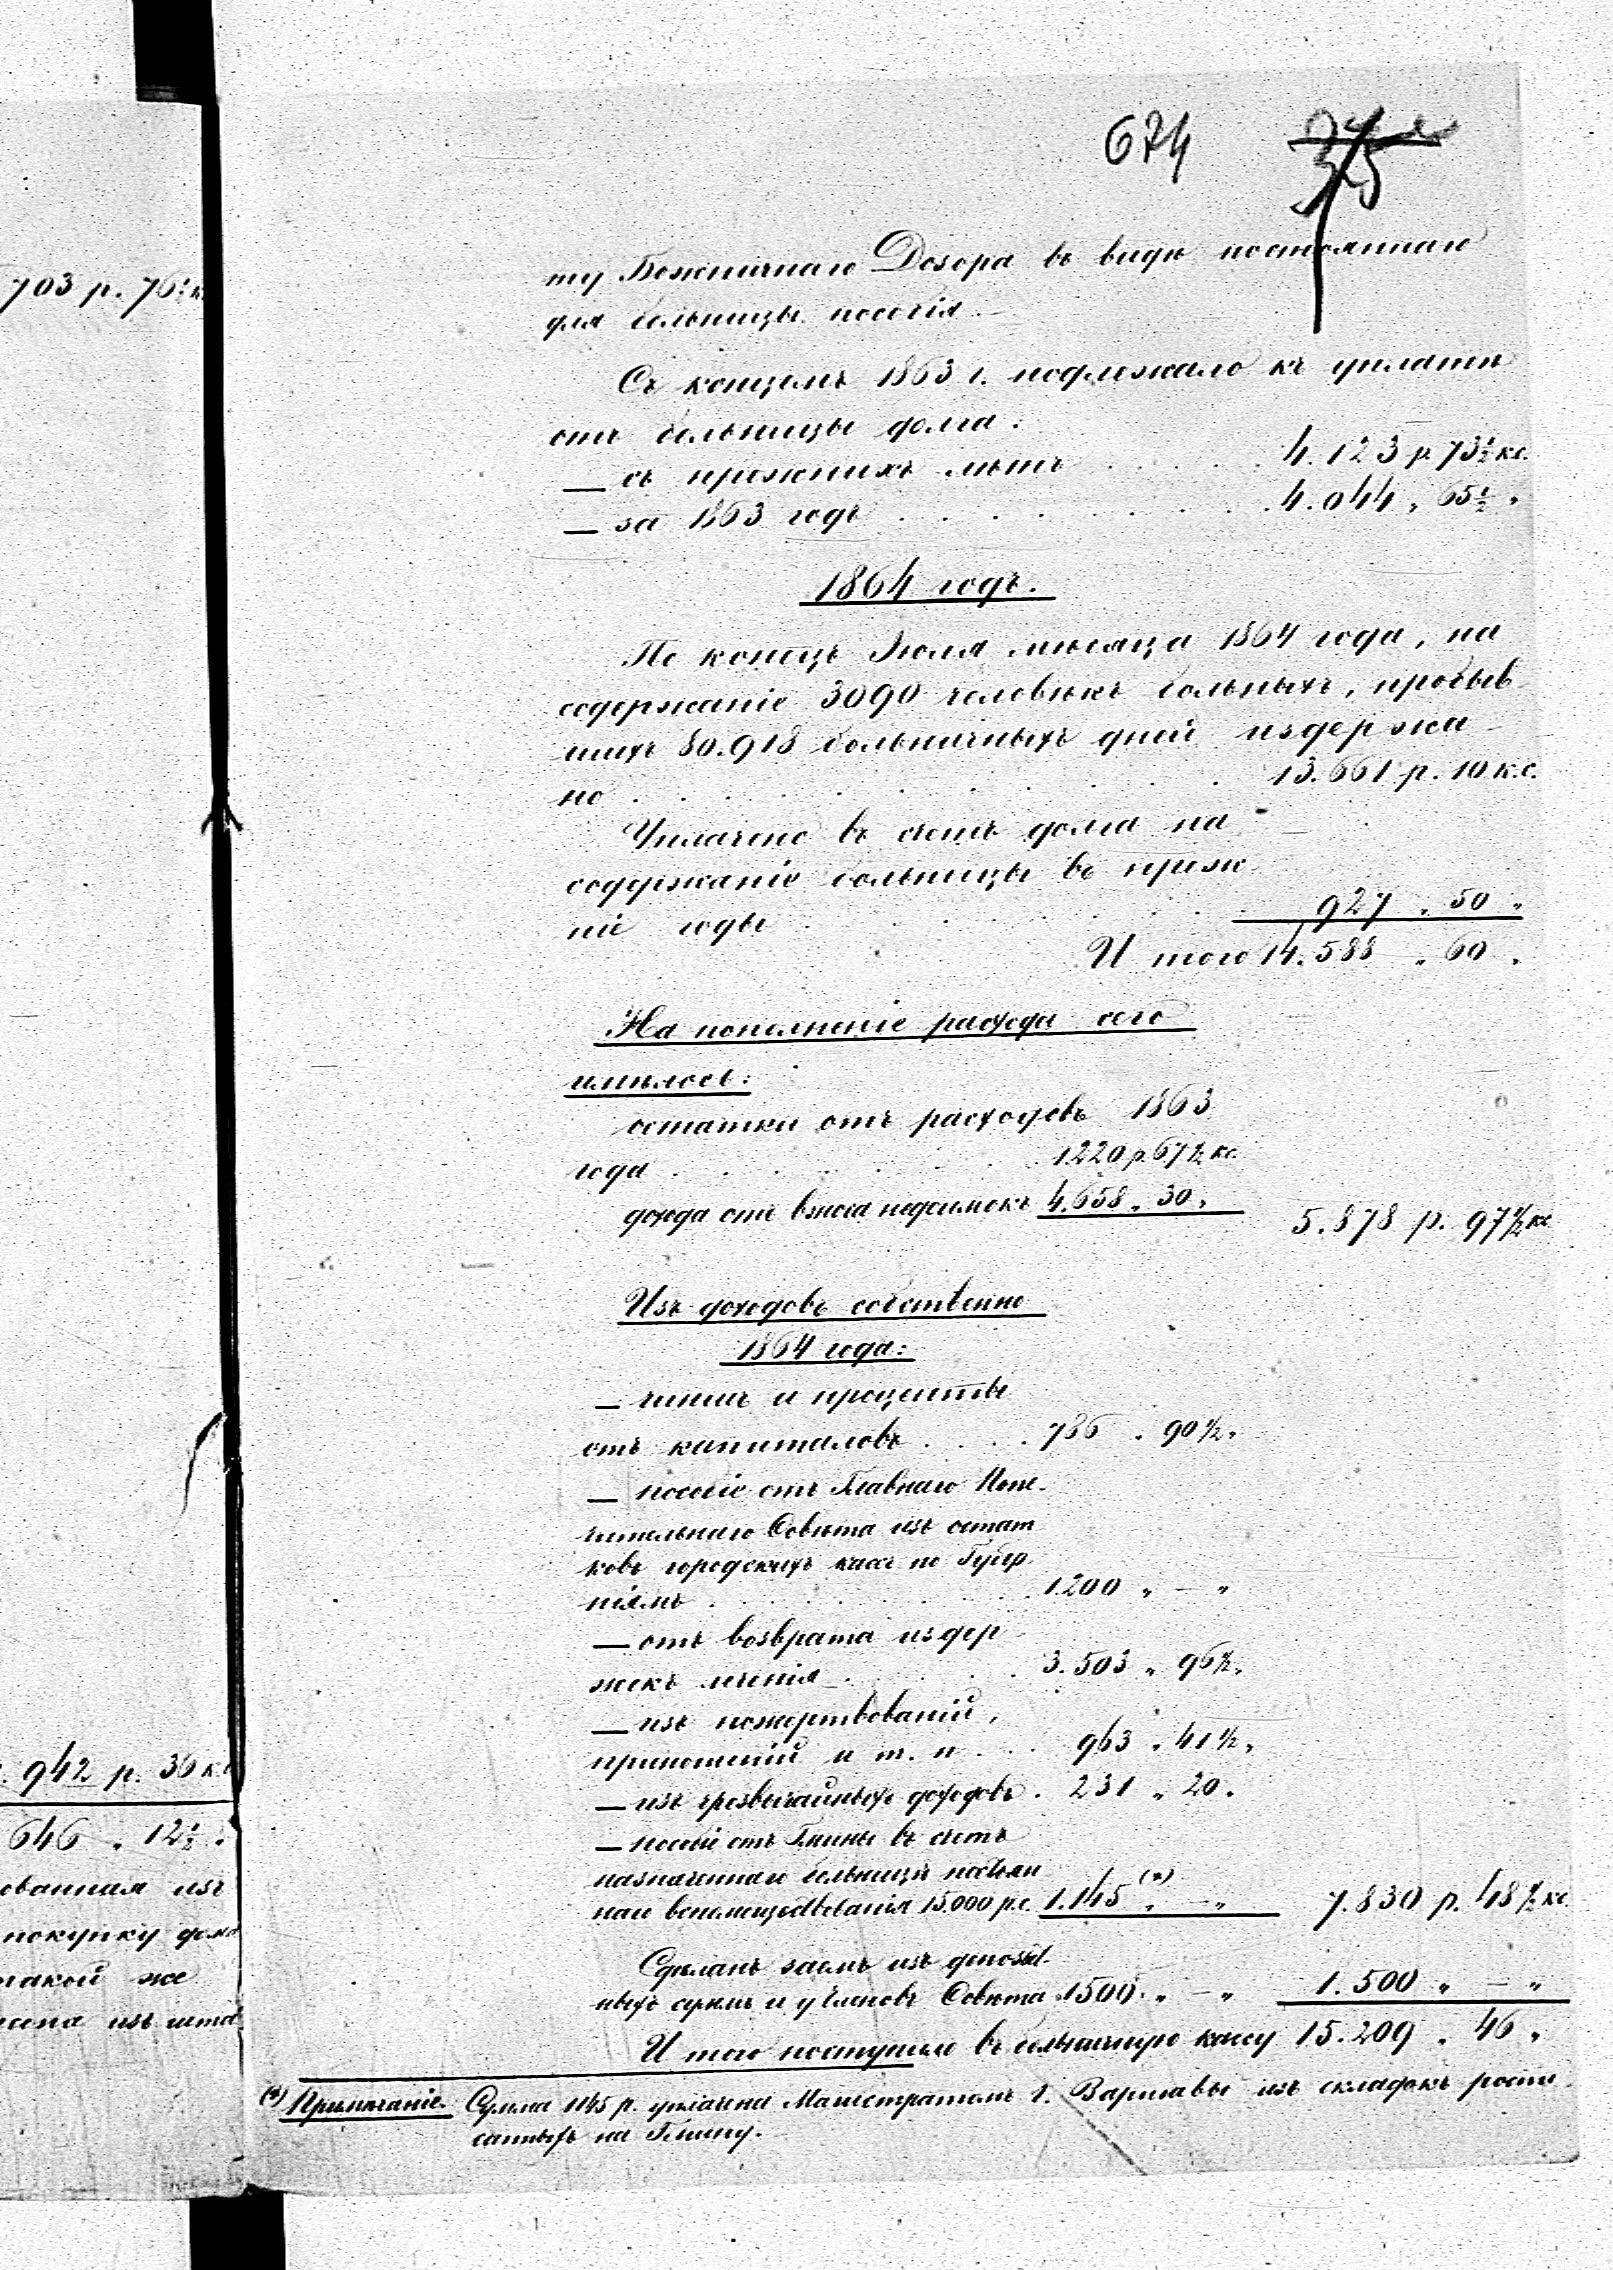 703 р. 76½ к.
942 р. 36 к.
646 „ 12½ „
ованная изъ
покупку дома
такой же
674
375
ту Божничнаго Дозора въ видѣ постояннаго
для больницы пособія. —
Съ концемъ 1863 г. подлежало къ уплатѣ
отъ больницы долга:
— съ прежнихъ лѣтъ . . . . . 4.123 р. 73½ кс.
— за 1863 годъ . . . . . . . . 4.044 „ 65½ „
1864 годъ.
По конецъ Іюля мѣсяца 1864 года, на
содержаніе 3090 человѣкъ больныхъ, пробыв
шихъ 80.918 больничныхъ дней издержа
но . . . . . . . . . . 13.661 р. 10 к.с.
Уплачено въ счетъ долга на
содержаніе больницы въ преж
ніе годы . . . . . . . . 927 „ 50 „
И того 14.588 „ 60 „
На пополненіе расхода сего
имѣлось:
остатки отъ расходовъ 1863
года . . . . . . . . 1.220 р. 67½ кс.
дохода отъ взноса недоимокъ 4.658 „ 30 „ 5.878 р. 97½ кс
Изъ доходовъ собственно
1864 года:
— чиншъ и проценты
отъ капиталовъ . . . . 786 „ 90½ „
— пособіе отъ Главнаго Попе-
чительнаго Совѣта изъ остат
ковъ городскихъ кассъ по Губер
ніямъ . . . . . . . . 1.200 „ — „
— отъ возврата издер
жекъ леченія . . . . . 3.503 „ 96½ „
— изъ пожертвованій,
приношеній и т. п. . . . 963 „ 41½ „
— изъ чрезвычайныхъ доходовъ . 231 „ 20 „
— пособіе отъ Гмины въ счетъ
назначеннаго больницѣ постоян
наго вспомоществованія 15.000 р.с. 1.145 (*) „ — „ 7.830 р. 48½ кс.
Сдѣланъ заемъ изъ депозит-
ныхъ суммъ и у Членовъ Совѣта 1500 „ — „ 1.500 „ — „
И того поступило въ больничную кассу 15.209 „ 46 „
(*) Примѣчаніе. Сумма 1145 р. уплачена Магистратомъ г. Варшавы изъ складокъ роспи
санныхъ на Гмину.